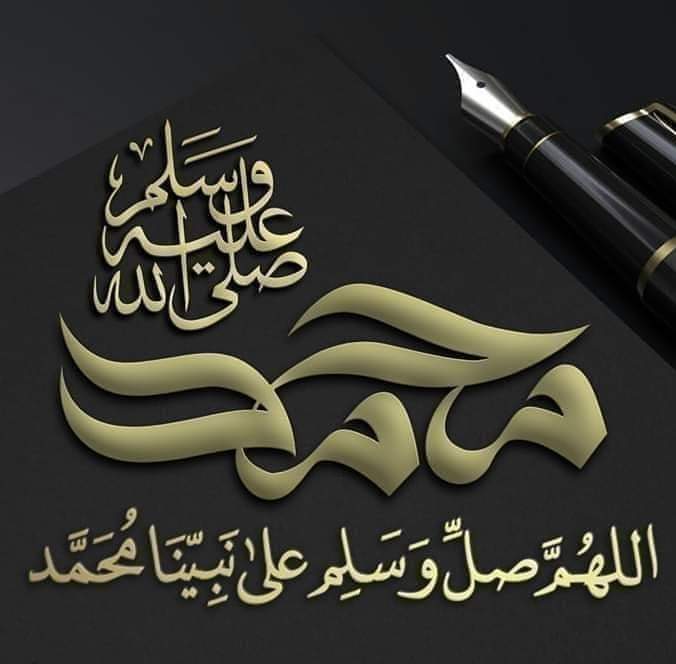 صلى الله
عليه
وسلم
محمد
اللهُمَّ صلِّ وَسَلِم علىٰ نَبِيّنَا مُحَمَّد